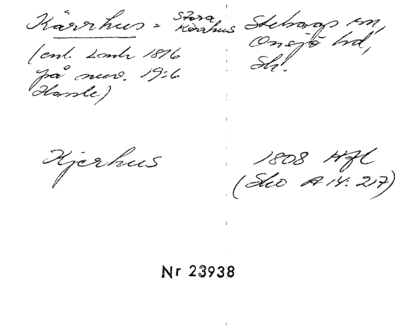 Kärrhus = Stora Kärrhus Stehags sn,
(enl. Lmh 1896 Onsjö hd,
på nuv. 19:6 Sk.
Hassle)
Kjerhus 1808 Hfl
(Sko A 14: 217)
Nr 23938